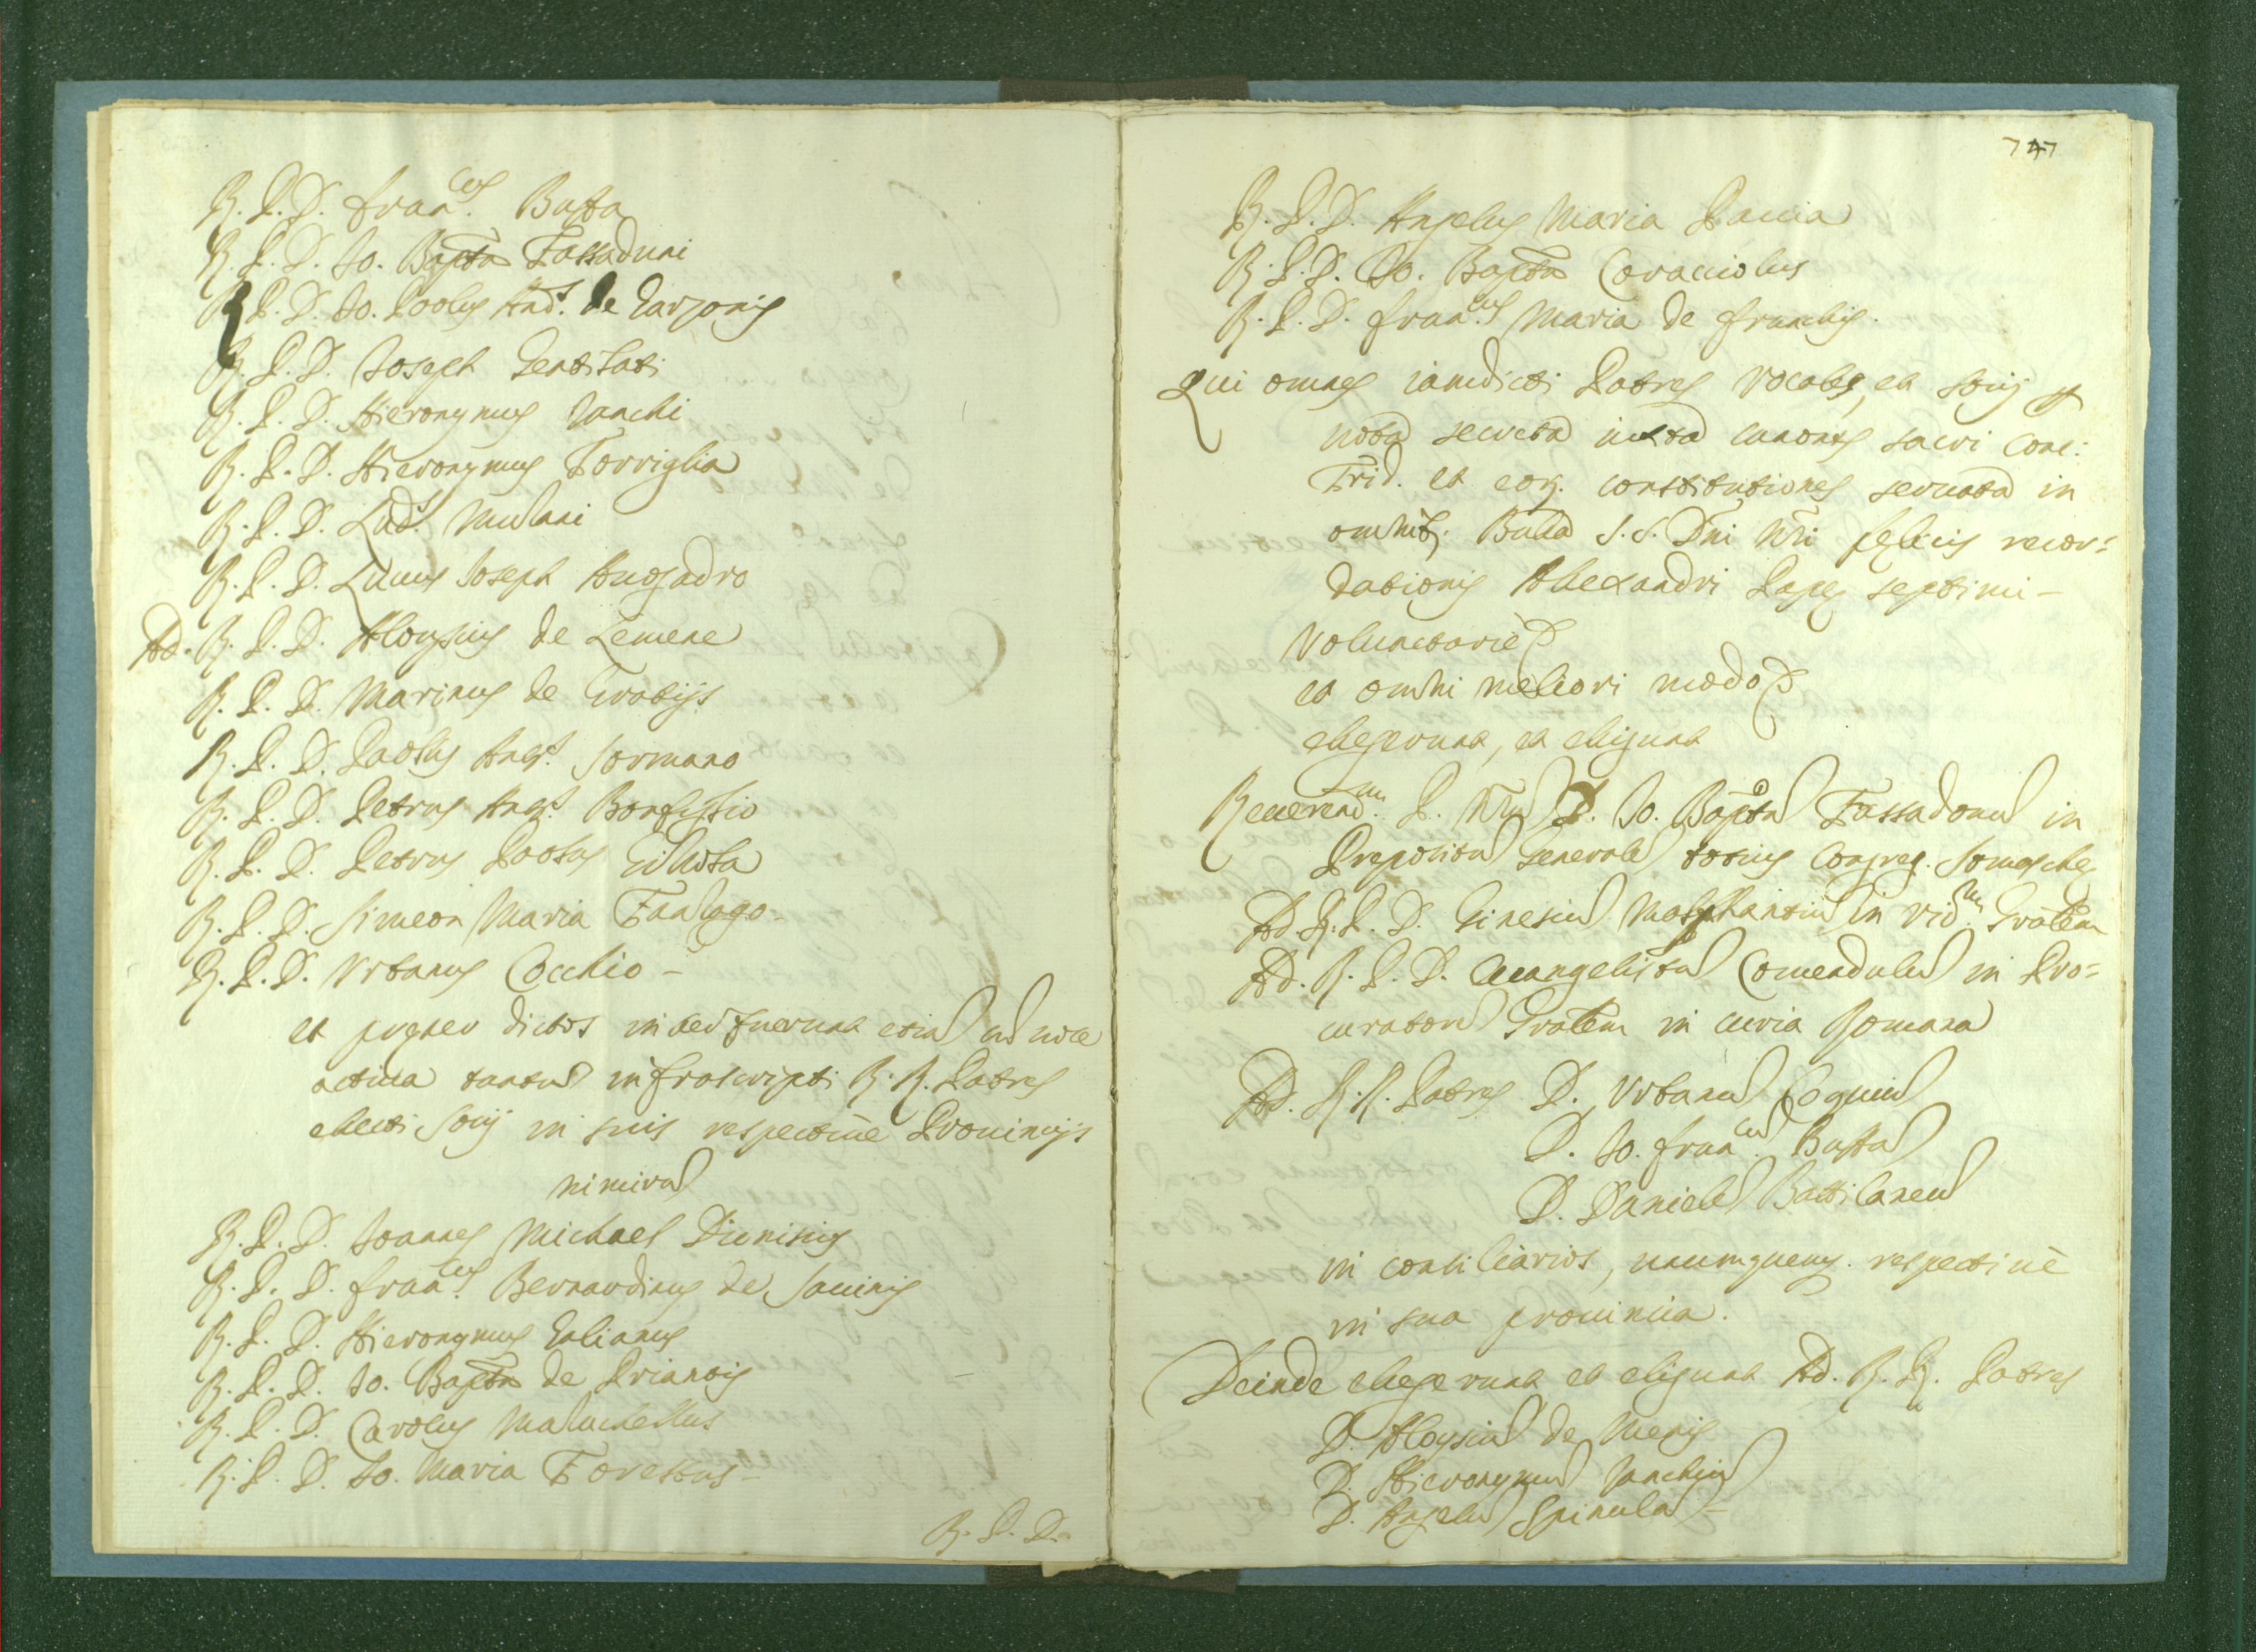 R. P. D. Fran.cus Busta
R. P. D. Jo. Bapta Fassaduni
R. P. D. Jo. Paolus And.s de Garzonis
R. P. D. Joseph Gentilati
R. P. D. Hieronymus Zanchi
R. P. D. Hieronymus Torriglia
R. P. D. Lud.s Mulani
R. P. D. Lucius Joseph Auogadro
Ad. R. P. D. Aloysius de Lemene
R. P. D. Marinus de Gratijs
R. P. D. Paolus Aug.s Sormano
R. P. D. Petrus Aug.s Bonfiglio
R. P. D. Petrus Paolus
R. P. D. Simeon Maria
R. P. D. Vrbanus Cocchio -
et preter dictos interfuerunt etiam cum voce
actiua tantum infrascripti R. R. Patres
electi socij in suis respectiuè Prouincijs
nimirum
R. P. D. Joannes Michael Dionisius
R. P. D. Fran.cus Bernardinus de Sauinis
R. P. D. Hieronymus Galianus
R. P. D. Jo. Bapta de Prianis
R. P. D. Carolus Maluchellus
R. P. D. Jo. Maria Torettus -
R. P. D.
747
R. P. D. Angelus Maria Pauia
R. P. D. Jo. Bapta Coracciolus
R. P. D. Fran.cus Maria de Franchis.
Qui omnes iamdicti Patres Vocales, et socij
uota secreta iuxta canones sacri Conc:
Trid. et eor. constitutiones seruata in
omnib. Bulla S. S. Dni Nri felicis recor=
dationis Alexandri Papę septimi -
Voluntariè
et omni meliori modo
elegerunt, et eligunt
Reuerend.m P. Nrum D. Jo. Baptam Fassadonum in
Prepositum Generalem totius Congreg. Somaschę
Ad. R. P. D. Ginesium Malphantium in Vic.m Gralem
Ad. R. P. D. Euangelistam Comendulum in Pro=
curatorem Gralem in curia Romana
Ad. R. R. Patres D. Vrbanum Coquium
D. Jo. Fran.cum Bustam
D. Danielem Battilanum
in consiliarios, unumquemq. respectiuè
in sua prouincia.
Deinde elegerunt et eligunt Ad. R. R. Patres
D. Aloysium de Menis
D. Hieronymum Zanchium
D. Angelum Spinulam -